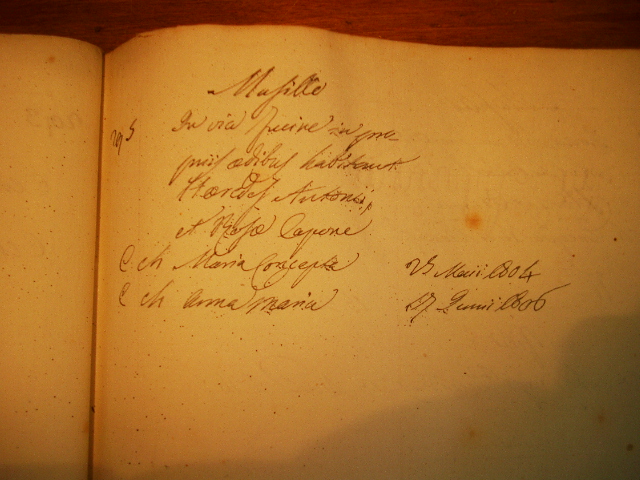 Masillo
295 In via Fucine in pro-
priis ædibus habitant
Hæredes Antonii,
et Rosæ Capone
C ch Maria Concepta 25 Maii 1804
C ch Anna Maria 27 Junii 1806